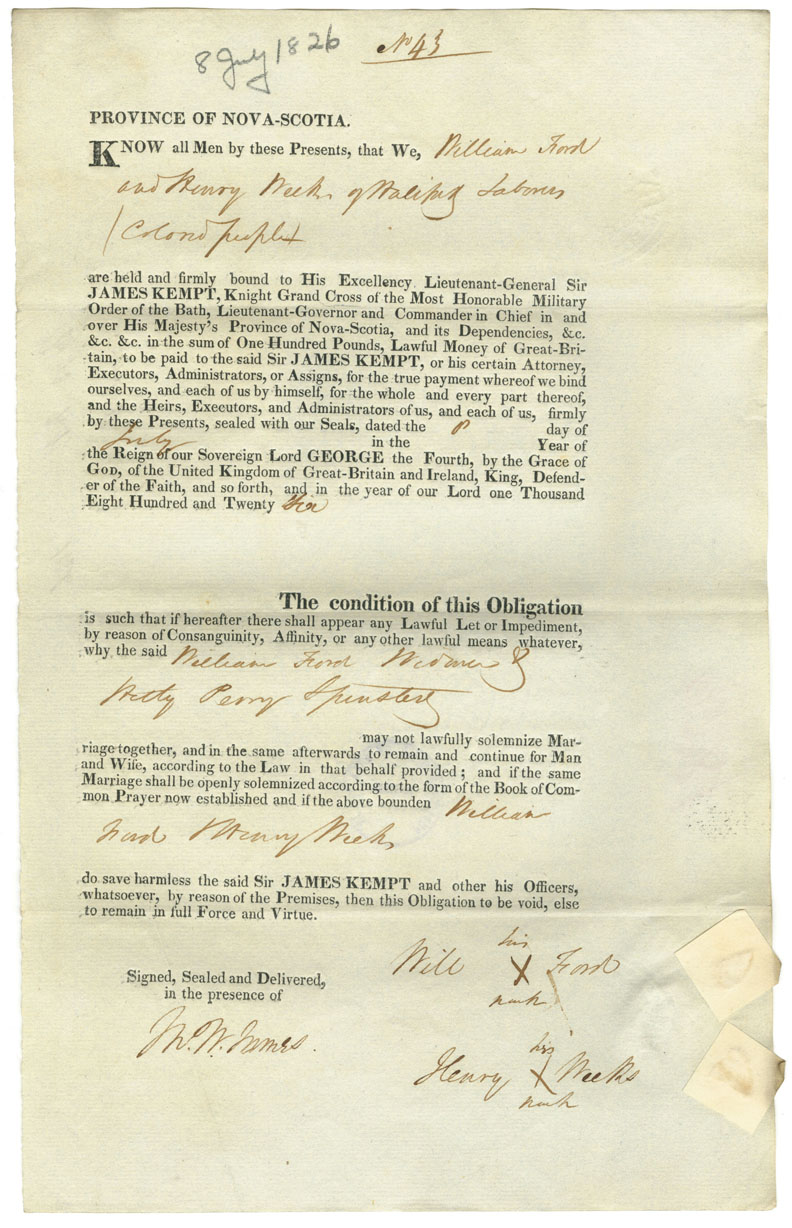 8 July 1826 No 43
PROVINCE OF NOVA-SCOTIA.
KNOW all Men by these Presents, that We, William Ford
and Henry Weeks of Halifax Laborers
(Colored people)
are held and firmly bound to His Excellency Lieutenant-General Sir
JAMES KEMPT, Knight Grand Cross of the Most Honorable Military
Order of the Bath, Lieutenant-Governor and Commander in Chief in and
over His Majesty's Province of Nova-Scotia, and its Dependencies, &c.
&c. &c. in the sum of One Hundred Pounds, Lawful Money of Great-Bri-
tain, to be paid to the said Sir JAMES KEMPT, or his certain Attorney,
Executors, Administrators, or Assigns, for the true payment whereof we bind
ourselves, and each of us by himself, for the whole and every part thereof,
and the Heirs, Executors, and Administrators of us, and each of us, firmly
by these Presents, sealed with our Seals, dated the 8 day of
July in the Year of
the Reign of our Sovereign Lord GEORGE the Fourth, by the Grace of
GOD, of the United Kingdom of Great-Britain and Ireland, King, Defend-
er of the Faith, and so forth, and in the year of our Lord one Thousand
Eight Hundred and Twenty Six
The condition of this Obligation
is such that if hereafter there shall appear any Lawful Let or Impediment,
by reason of Consanguinity, Affinity, or any other lawful means whatever,
why the said William Ford Widower &
Hetty Perry Spinster
may not lawfully solemnize Mar-
riage together, and in the same afterwards to remain and continue for Man
and Wife, according to the Law in that behalf provided; and if the same
Marriage shall be openly solemnized according to the form of the Book of Com-
mon Prayer now established and if the above bounden William
Ford & Henry Weeks
do save harmless the said Sir JAMES KEMPT and other his Officers,
whatsoever, by reason of the Premises, then this Obligation to be void, else
to remain in full Force and Virtue.
his
Will X Ford
mark
Signed, Sealed and Delivered,
in the presence of
his
Henry X Weeks
mark